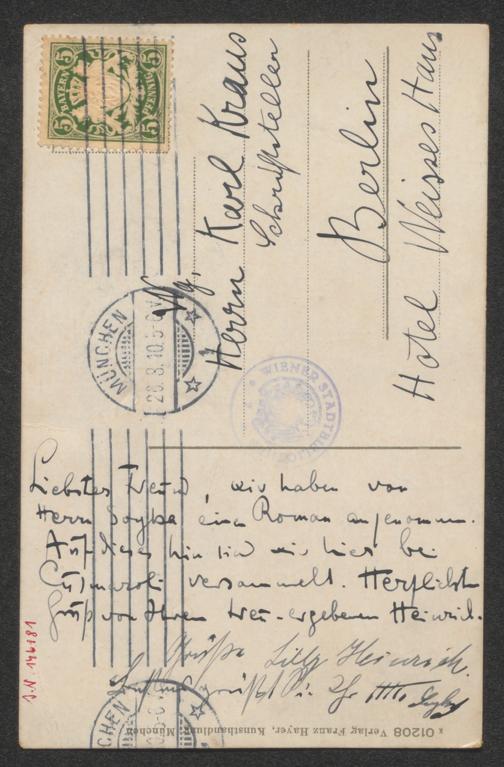 BAYERN
5 5
5 5
PFENNIG
MÜNCHEN
28.8.10. 5-6
Herrn Karl Kraus
Schriftsteller
Berlin
Hotel Weisses Haus
WIENER STADTBIBLIOTHEK
Liebster Freund, wir haben von
Herrn Soyka einen Roman angenommen.
Auf dieses hin sind wir hier bei
versammelt. Herzlichste
Grüße von Ihrem treu-ergebenen Heinrich.
Grüße Lilly Heinrich.
grüßt Sie Ihr
I.N. 146181
CHEN
01208 Verlag Franz Hayer, Kunsthandlung, München